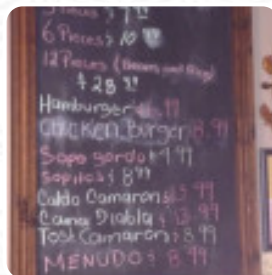 6 Pieces $ 10
12 Pieces (Beans and Rice)
$ 28 99
Hamburger .99
Chicken Burger 8.99
Sope gordo $ 9.99
sopitos $ 8 99
Caldo Camaron $ 15.99
Cama Diabla $ 13.99
Tost Camaron $ 8.99
MENUDO $ 8.99